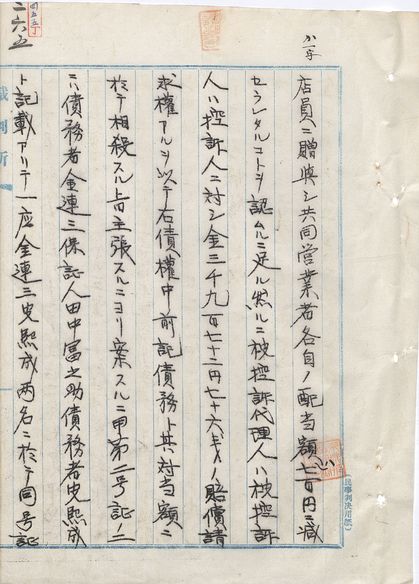 店員ニ贈與シ共同営業者各自ノ配当額七百円ニ減
セラレタルコトヲ認ムルニ足ル然ルニ被控訴代理人ハ被控訴
人ハ控訴人ニ対シ金三千九百七十二円七十六銭ノ賠償請
求權アルヲ以テ右債權中前記債務ト其対当額ニ
於テ相殺スル旨主張スルニヨリ案スルニ甲第二号証ノ二
ニハ債務者金連三保証人田中富之助債務者史熙成
ト記載アリテ一応金連三史熙成両名ニ於テ同号証
裁判所
二六五